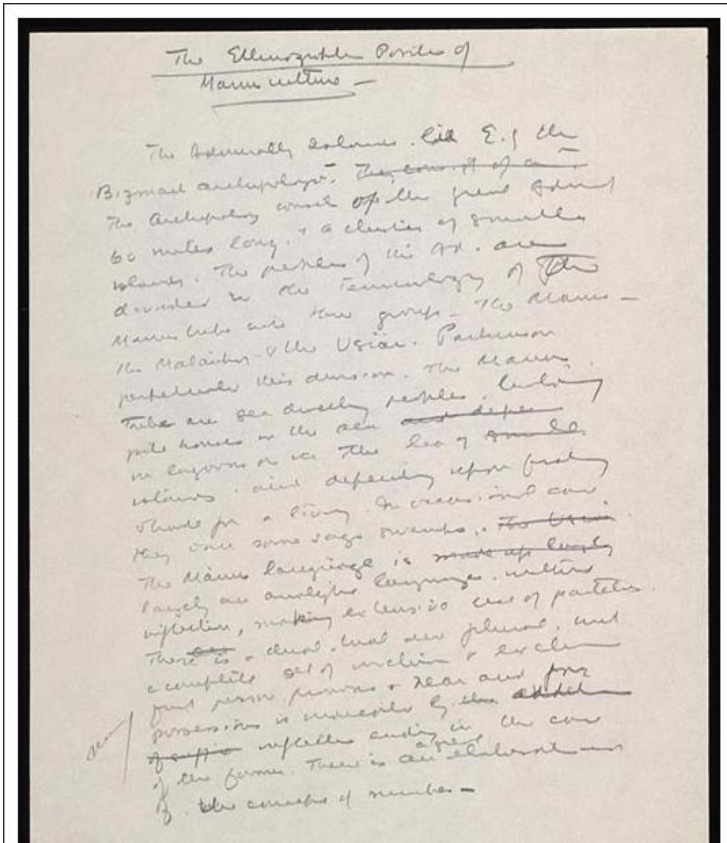 The Ethnographic Position of
Manus culture —
The Admiralty Islands lie E. of the
Bismarck Archipelago. They consist of a
The Archipelago consists of the great Admiralty
60 miles long, & a cluster of smaller
islands. The peoples of the Ad. are
divided in the terminology of the
Manus tribe into three groups — The Manus —
the Matankor & the Usiai. Parkinson
perpetuates this division. The Manus
Tribe are sea dwelling peoples, building
pile houses in the sea and depen
in lagoons or in the lea of small
islands and depending upon fishing
& trade for a living. In occasional cases
they own some sago swamps. The Usiai
The Manus language is made up largely
largely an analytic language, without
inflection, making extensive use of particles.
There is a dual, trial and plural, and
a complete set of inclusive & exclusive
first person pronouns & near and far
possession is indicated by the
of suffix inflected ending in the case
of the former. There is a great elaboration
of the concepts of number —